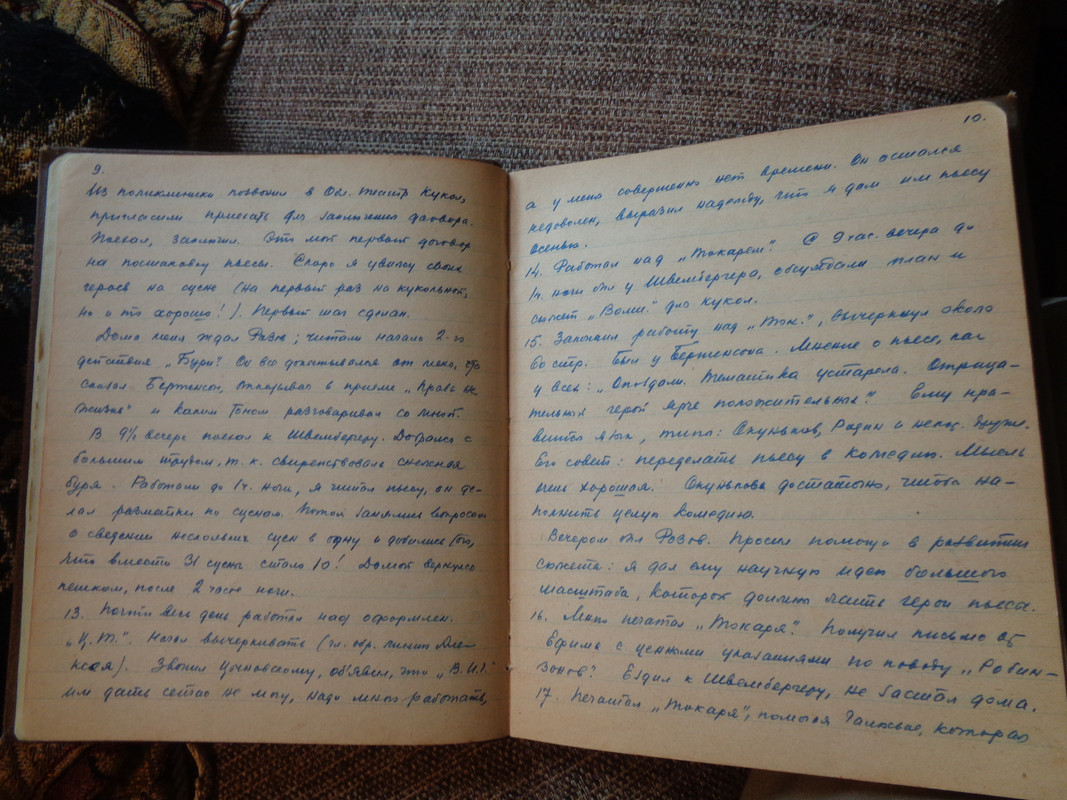 9.
Из поликлиники позвонил в Обл. театр кукол,
пригласили приехать для заключения договора.
Поехал, заключил. Это мой первый договор
на постановку пьесы. Скоро я увижу своих
героев на сцене (на первый раз на кукольной,
но и то хорошо!). Первый шаг сделан.
Дома меня ждал Розов; читали начало 2-го
действия „Бури“. Он все докатывался от смеха,
сказал Бертенсон, отказывая в приеме „Права на
жизнь“ и каким тоном разговаривал со мной.
В 9½ вечера поехал к Швембергеру. Добрался с
большим трудом, т. к. свирепствовала снежная
буря. Работали до 1 ч. ночи, я читал пьесу, он де-
лал разметки по сценам. Потом занялись вопросом
о сведении нескольких сцен в одну и добились того,
что вместо 31 сцены стало 10! Домой вернулся
пешком, после 2 часов ночи.
13. Почти весь день работал над оформлен.
„Ц.Т.“. Начал вычеркивать (гл. обр. линию Але-
ксея). Звонил Цехновскому, объявил, что „В.И.“
им дать сейчас не могу, надо много работать,
10.
а у меня совершенно нет времени. Он остался
недоволен, выразил надежду, что я дам им пьесу
осенью.
14. Работал над „Токарем“. С 9 час. вечера до
1 ч. ночи был у Швембергера, обсуждали план и
сюжет „Волш.“ для кукол.
15. Закончил работу над „Ток.“, вычеркнул около
60 стр. Был у Бертенсона. Мнение о пьесе, как
у всех: „Опоздали. Тематика устарела. Отрица-
тельный герой ярче положительных“. Ему нра-
вится язык, типы: Окуньков, Родин и некот. другие.
Его совет: переделать пьесу в комедию. Мысль
очень хорошая! Окунькова достаточно, чтобы на-
полнить целую комедию.
Вечером был Розов. Просил помощи в развитии
сюжета: я дал ему научную идею большого
масштаба, которой должны жить герои пьесы.
16. Много печатал „Токаря“. Получил письмо от
Ефима с ценными указаниями по поводу „Робин-
зонов“. Ездил к Швембергеру, не застал дома.
17. Печатал „Токаря“, помогая Галюське, которая